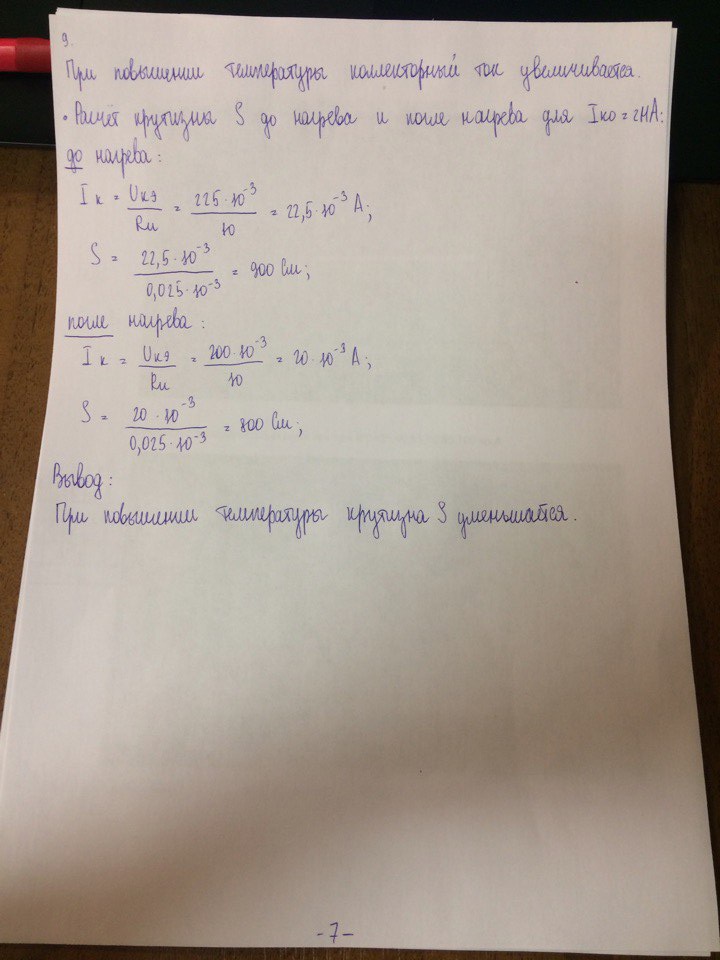 9.
При повышении температуры коллекторный ток увеличивается.
• Расчёт крутизны S до нагрева и после нагрева для Iко = 2мА:
до нагрева:
Iк = Uкэ/Rи = 225·10⁻³/10 = 22,5·10⁻³ А;
S = 22,5·10⁻³/0,025·10⁻³ = 900 См;
после нагрева:
Iк = Uкэ/Rи = 200·10⁻³/10 = 20·10⁻³ А;
S = 20·10⁻³/0,025·10⁻³ = 800 См;
Вывод:
При повышении температуры крутизна S уменьшается.
-7-